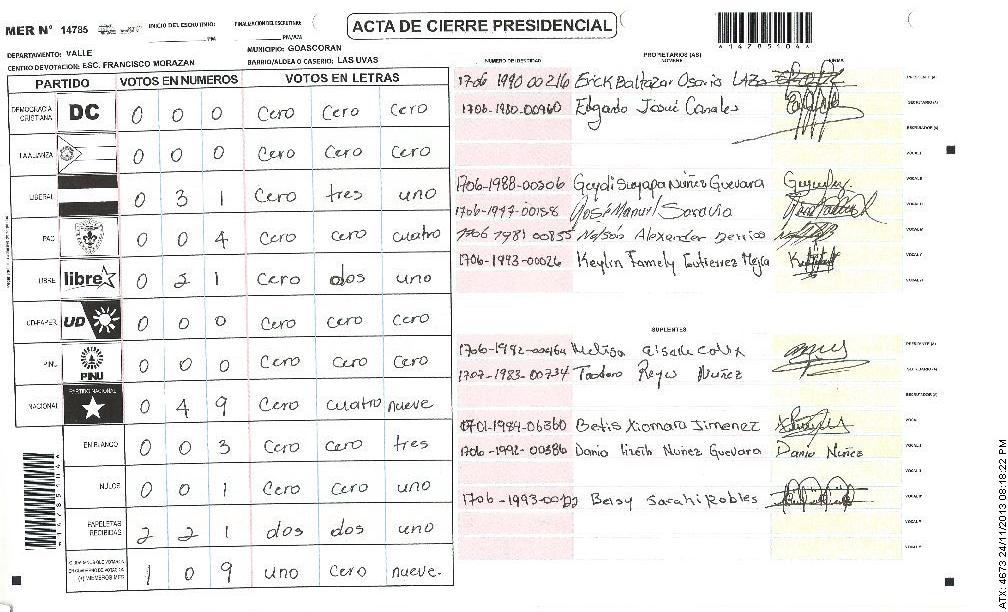 MER N° 14785 INICIO DEL ESCRUTINIO: FINALIZACION DEL ESCRUTINIO:
PM PM/AM
ACTA DE CIERRE PRESIDENCIAL
DEPARTAMENTO: VALLE MUNICIPIO: GOASCORAN
CENTRO DE VOTACION: ESC. FRANCISCO MORAZAN BARRIO/ALDEA O CASERIO: LAS UVAS
PARTIDO VOTOS EN NUMEROS VOTOS EN LETRAS
DEMOCRACIA CRISTIANA DC 0 0 0 Cero Cero Cero
LA ALIANZA 0 0 0 Cero Cero Cero
LIBERAL 0 3 1 Cero tres uno
PAC 0 0 4 Cero Cero cuatro
LIBRE libre 0 2 1 Cero dos uno
UD-FAPER UD 0 0 0 Cero Cero Cero
PINU PINU 0 0 0 Cero Cero Cero
NACIONAL PARTIDO NACIONAL 0 4 9 Cero cuatro nueve
EN BLANCO 0 0 3 Cero Cero tres
NULOS 0 0 1 Cero Cero uno
PAPELETAS RECIBIDAS 2 2 1 dos dos uno
1 0 9 uno Cero nueve.
PROPIETARIOS (AS)
NUMERO DE IDENTIDAD NOMBRE FIRMA
1706 1990 00216 Erick Baltazar Osorio PRESIDENTE (A)
1706-1980-00960 Edgardo Josué Canales SECRETARIO (A)
ESCRUTADOR (A)
VOCAL I
1706-1988-00306 Geydi Suyapa Nuñez Guevara VOCAL II
1706-1997-00158 José Manuel Saravia
Nelson Alexander Berrios
1706-1993-00026 Keylin Famely Gutierrez Mejia
SUPLENTES
Melissa PRESIDENTE (A)
1707-1983-00734 Teodoro Reyes Nuñez SECRETARIO (A)
ESCRUTADOR (A)
1701-1984-06360 Betis Xiomara Jimenez
1706-1992-00386 Dania Lizeth Nuñez Guevara Dania Nuñez
Belsy Sarahi Robles
ATX: 4673 24/11/2013 08:18:22 PM